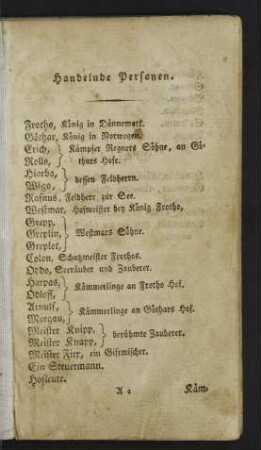 Handelnde Personen.
Frotho, König in Dännemark.
Göthar, König in Norwegen.
Erich, } Kämpfer Regners Söhne, an Gö-
Rollo, } thars Hofe.
Hiarba, } dessen Feldherrn.
Wigo, }
Rafnus, Feldherr zur See.
Westmar, Hofmeister bey König Frotho,
Grepp, }
Greplin, } Westmars Söhne.
Greplot, }
Colon, Schatzmeister Frothos.
Oddo, Seeräuber und Zauberer.
Harpas, } Kämmerlinge an Frotho Hof.
Odloff, }
Arnulf, } Kämmerlinge an Göthars Hof.
Morgau, }
Meister Knipp, } berühmte Zauberer.
Meister Knapp, }
Meister Fixx, ein Giftmischer.
Ein Steuermann.
Hofleute.
A 2 Käm-